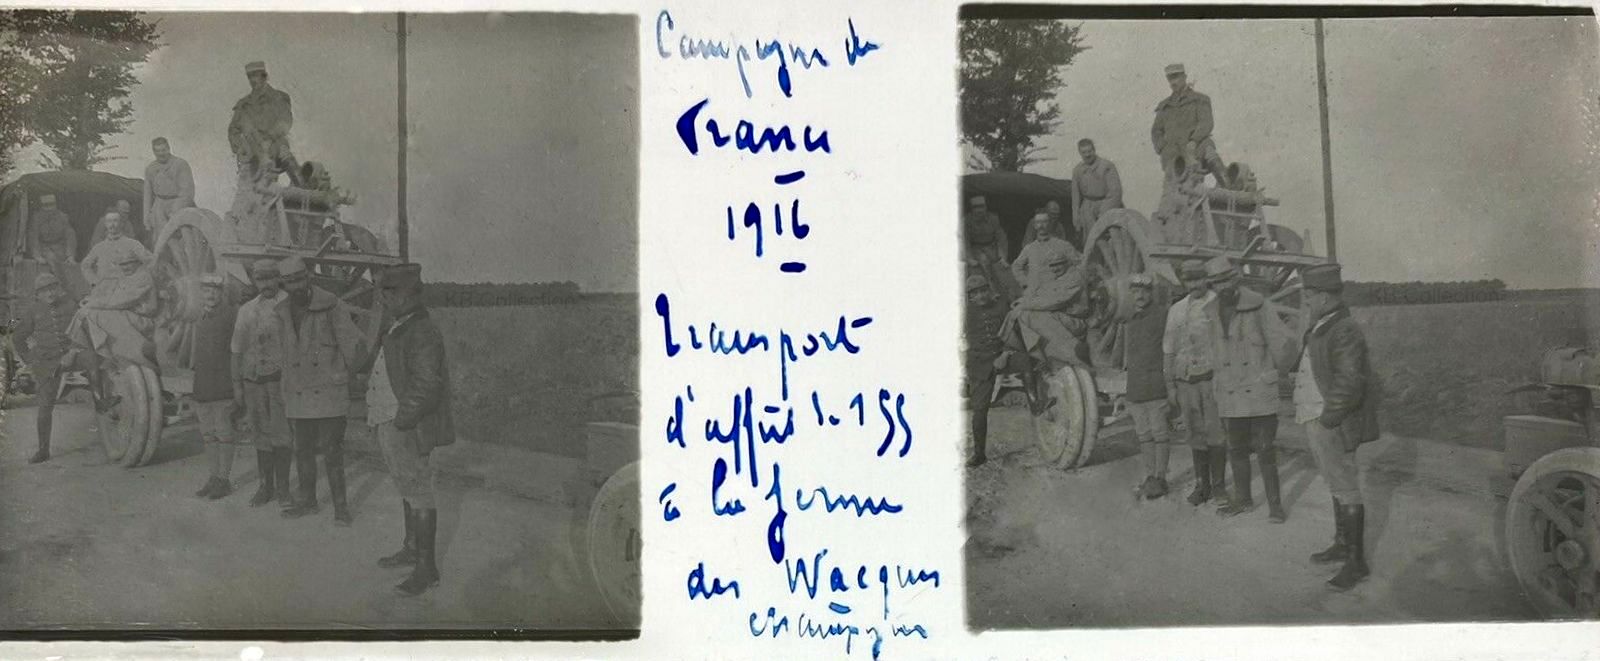 Campagne de
France
1916
Transport
d'affûts de 155
à la ferme
des Wacques
Champagne
KB-Collection
KB-Collection